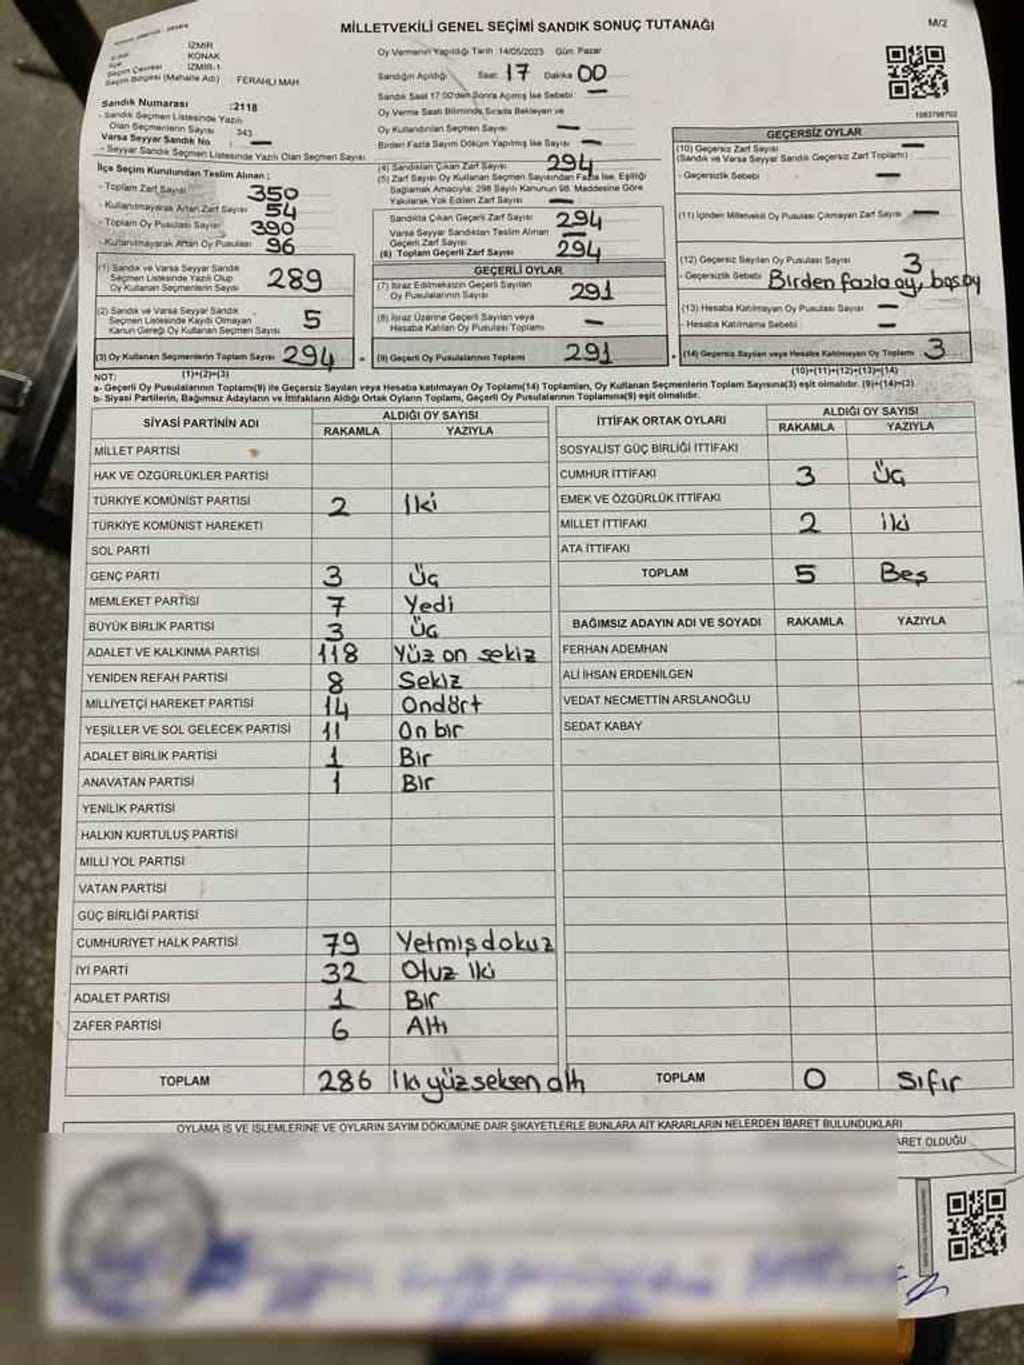 MİLLETVEKİLİ GENEL SEÇİMİ SANDIK SONUÇ TUTANAĞI
M/2
İZMİR
KONAK
Seçim Çevresi İZMİR-1
Seçim Bölgesi (Mahalle Adı) FERAHLI MAH
Sandık Numarası :2118
- Sandık Seçmen Listesinde Yazılı
Olan Seçmenlerin Sayısı 343
Varsa Seyyar Sandık No : —
- Seyyar Sandık Seçmen Listesinde Yazılı Olan Seçmen Sayısı
İlçe Seçim Kurulundan Teslim Alınan :
- Toplam Zarf Sayısı 350
- Kullanılmayarak Artan Zarf Sayısı 54
- Toplam Oy Pusulası Sayısı 390
- Kullanılmayarak Artan Oy Pusulası 96
(1) Sandık ve Varsa Seyyar Sandık
Seçmen Listesinde Yazılı Olup
Oy Kullanan Seçmenlerin Sayısı 289
(2) Sandık ve Varsa Seyyar Sandık
Seçmen Listesinde Kayıtlı Olmayan
Kanun Gereği Oy Kullanan Seçmen Sayısı 5
(3) Oy Kullanan Seçmenlerin Toplam Sayısı 294
(1)+(2)=(3)
Oy Vermenin Yapıldığı Tarih :14/05/2023 Gün: Pazar
Sandığın Açıldığı Saat: 17 Dakika 00
Sandık Saat 17:00'den Sonra Açılmış İse Sebebi : —
Oy Verme Saati Bitiminde Sırada Bekleyen ve
Oy Kullandırılan Seçmen Sayısı —
Birden Fazla Sayım Döküm Yapılmış İse Sayısı —
(4) Sandıktan Çıkan Zarf Sayısı 294
(5) Zarf Sayısı Oy Kullanan Seçmen Sayısından Fazla İse, Eşitliği
Sağlamak Amacıyla; 298 Sayılı Kanunun 98. Maddesine Göre
Yakılarak Yok Edilen Zarf Sayısı —
Sandıkta Çıkan Geçerli Zarf Sayısı 294
Varsa Seyyar Sandıktan Teslim Alınan
Geçerli Zarf Sayısı —
(6) Toplam Geçerli Zarf Sayısı 294
GEÇERLİ OYLAR
(7) İtiraz Edilmeksizin Geçerli Sayılan
Oy Pusulalarının Sayısı 291
(8) İtiraz Üzerine Geçerli Sayılan veya
Hesaba Katılan Oy Pusulası Toplamı —
(9) Geçerli Oy Pusulalarının Toplamı 291
1083798702
GEÇERSİZ OYLAR
(10) Geçersiz Zarf Sayısı
(Sandık ve Varsa Seyyar Sandık Geçersiz Zarf Toplamı) —
- Geçersizlik Sebebi —
(11) İçinden Milletvekili Oy Pusulası Çıkmayan Zarf Sayısı —
(12) Geçersiz Sayılan Oy Pusulası Sayısı 3
- Geçersizlik Sebebi Birden fazla oy, boş oy
(13) Hesaba Katılmayan Oy Pusulası Sayısı —
- Hesaba Katılmama Sebebi —
(14) Geçersiz Sayılan veya Hesaba Katılmayan Oy Toplamı 3
(10)+(11)+(12)+(13)=(14)
NOT:
a- Geçerli Oy Pusulalarının Toplamı(9) ile Geçersiz Sayılan veya Hesaba katılmayan Oy Toplamı(14) Toplamları, Oy Kullanan Seçmenlerin Toplam Sayısına(3) eşit olmalıdır. (9)+(14)=(3)
b- Siyasi Partilerin, Bağımsız Adayların ve İttifakların Aldığı Ortak Oyların Toplamı, Geçerli Oy Pusulalarının Toplamına(9) eşit olmalıdır.
SİYASİ PARTİNİN ADI ALDIĞI OY SAYISI
RAKAMLA YAZIYLA
MİLLET PARTİSİ
HAK VE ÖZGÜRLÜKLER PARTİSİ
TÜRKİYE KOMÜNİST PARTİSİ 2 İki
TÜRKİYE KOMÜNİST HAREKETİ
SOL PARTİ
GENÇ PARTİ 3 Üç
MEMLEKET PARTİSİ 7 Yedi
BÜYÜK BİRLİK PARTİSİ 3 Üç
ADALET VE KALKINMA PARTİSİ 118 Yüz on sekiz
YENİDEN REFAH PARTİSİ 8 Sekiz
MİLLİYETÇİ HAREKET PARTİSİ 14 Ondört
YEŞİLLER VE SOL GELECEK PARTİSİ 11 On bir
ADALET BİRLİK PARTİSİ 1 Bir
ANAVATAN PARTİSİ 1 Bir
YENİLİK PARTİSİ
HALKIN KURTULUŞ PARTİSİ
MİLLİ YOL PARTİSİ
VATAN PARTİSİ
GÜÇ BİRLİĞİ PARTİSİ
CUMHURİYET HALK PARTİSİ 79 Yetmiş dokuz
İYİ PARTİ 32 Otuz iki
ADALET PARTİSİ 1 Bir
ZAFER PARTİSİ 6 Altı
TOPLAM 286 İki yüz seksen altı
İTTİFAK ORTAK OYLARI ALDIĞI OY SAYISI
RAKAMLA YAZIYLA
SOSYALİST GÜÇ BİRLİĞİ İTTİFAKI
CUMHUR İTTİFAKI 3 Üç
EMEK VE ÖZGÜRLÜK İTTİFAKI
MİLLET İTTİFAKI 2 iki
ATA İTTİFAKI
TOPLAM 5 Beş
BAĞIMSIZ ADAYIN ADI VE SOYADI RAKAMLA YAZIYLA
FERHAN ADEMHAN
ALİ İHSAN ERDENİLGEN
VEDAT NECMETTİN ARSLANOĞLU
SEDAT KABAY
TOPLAM 0 Sıfır
OYLAMA İŞ VE İŞLEMLERİNE VE OYLARIN SAYIM DÖKÜMÜNE DAİR ŞİKAYETLERLE BUNLARA AİT KARARLARIN NELERDEN İBARET BULUNDUKLARI
OLDUĞU